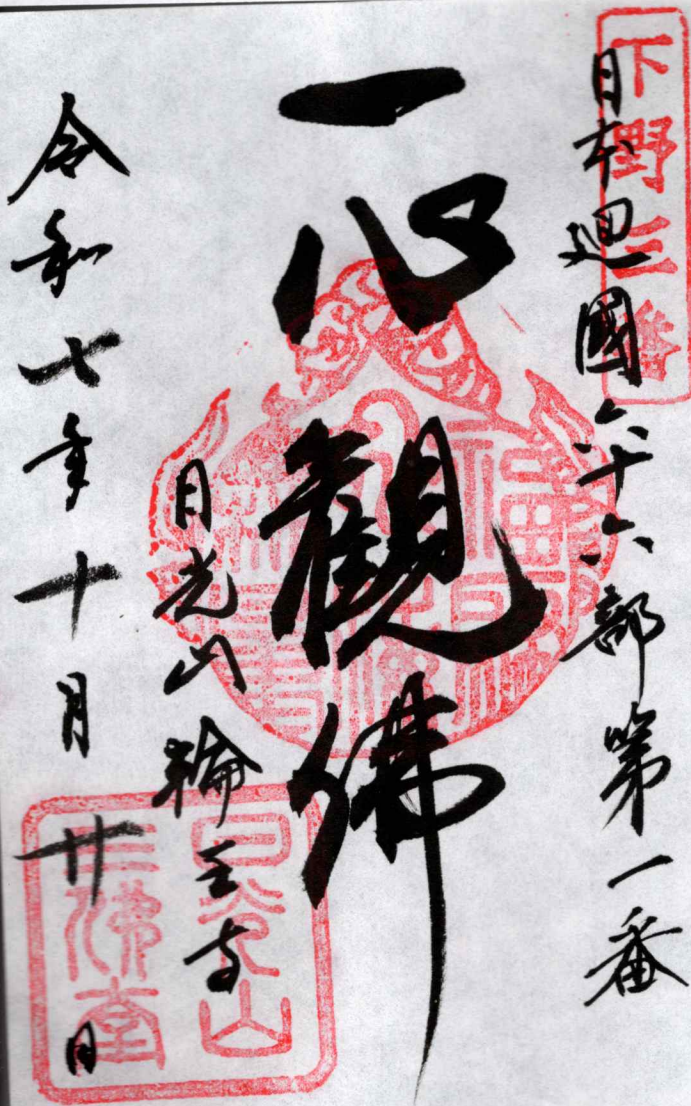 下野三番
日本廻國六十六部第一番
一心觀佛
日光山輪王寺
令和七年十月廿日
日光山
三佛堂